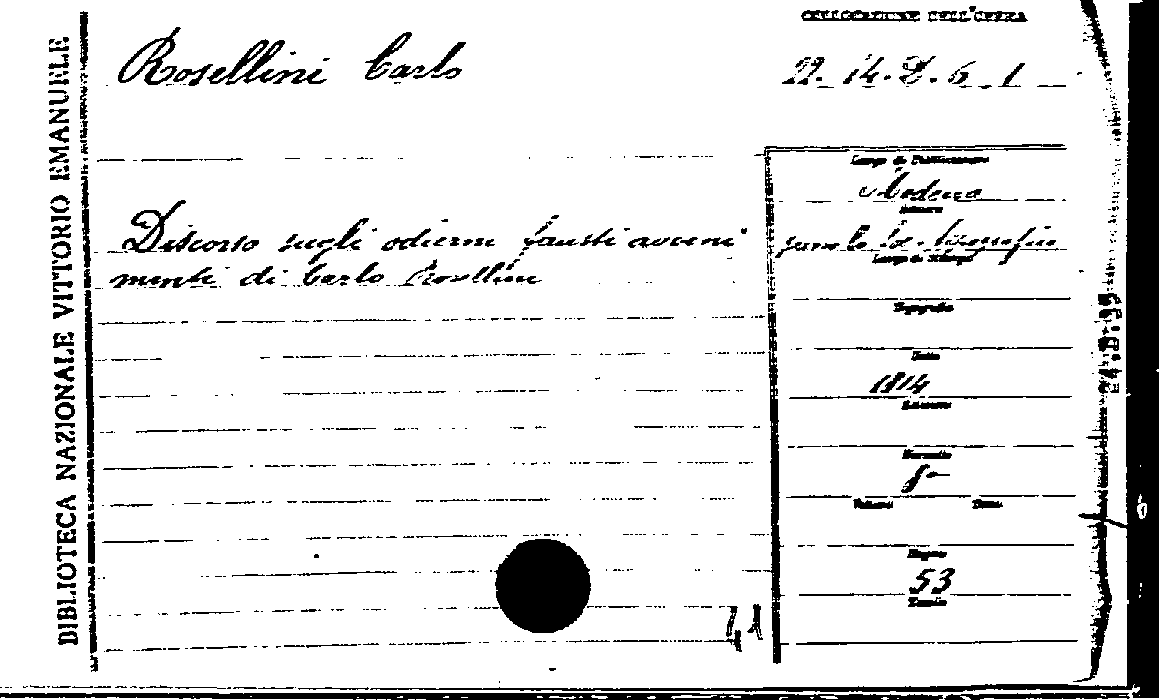 COLLOCAZIONE DELL'OPERA
Rosellini Carlo
22. 14. D. 6. 1
BIBLIOTECA NAZIONALE VITTORIO EMANUELE
Discorso sugli odierni fausti avveni-
menti di Carlo Rosellini
Luogo di Pubblicazione
Modena
Editore
per la tipografia
Luogo di Stampa
Tipografia
Data
1814
Edizione
Formato
8°
Volumi
Pagine
53
Tavole